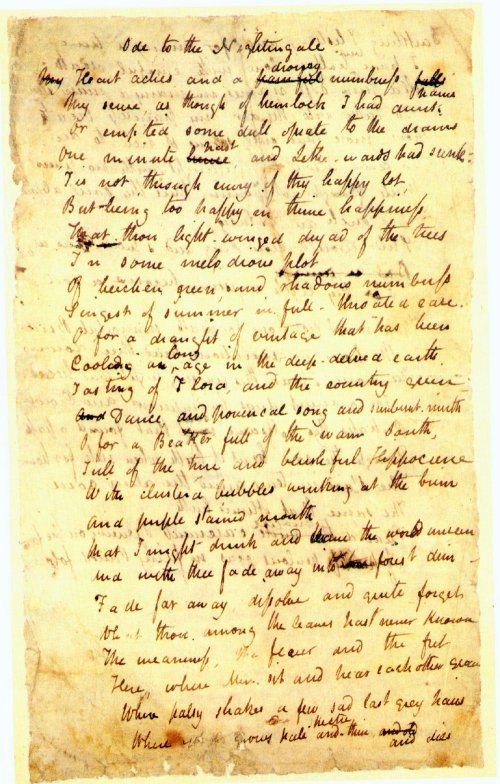 Ode to the Nightingale
drowsy
My Heart aches and a painful numbness falls
pains
My sense, as though of hemlock I had drunk,
Or emptied some dull opiate to the drains
past
One minute hence and Lethe-wards had sunk.
Tis not through envy of thy happy lot,
But being too happy in thine happiness
That thou light-winged dryad of the trees
In some melodious plot
Of beechen green, and shadows numberless
Singest of summer in full-throated ease.
O for a draught of vintage that has been
long
Cooling an age in the deep-delved earth
Tasting of Flora, and the country green
And Dance, and provencal song and sunburnt mirth
O for a Beaker full of the warm South,
Full of the true and blushful Hippocrene
With cluster'd bubbles winking at the brim
And purple stained mouth
That I might drink and leave the world unseen
And with thee fade away into the forest dim
Fade far away, dissolve and quite forget
What thou among the leaves hast never known
The weariness, the fever and the fret
Here, where Men sit and hear each other groan
Where palsy shakes a few sad last grey hairs
Where grows pale and thin and old
and dies